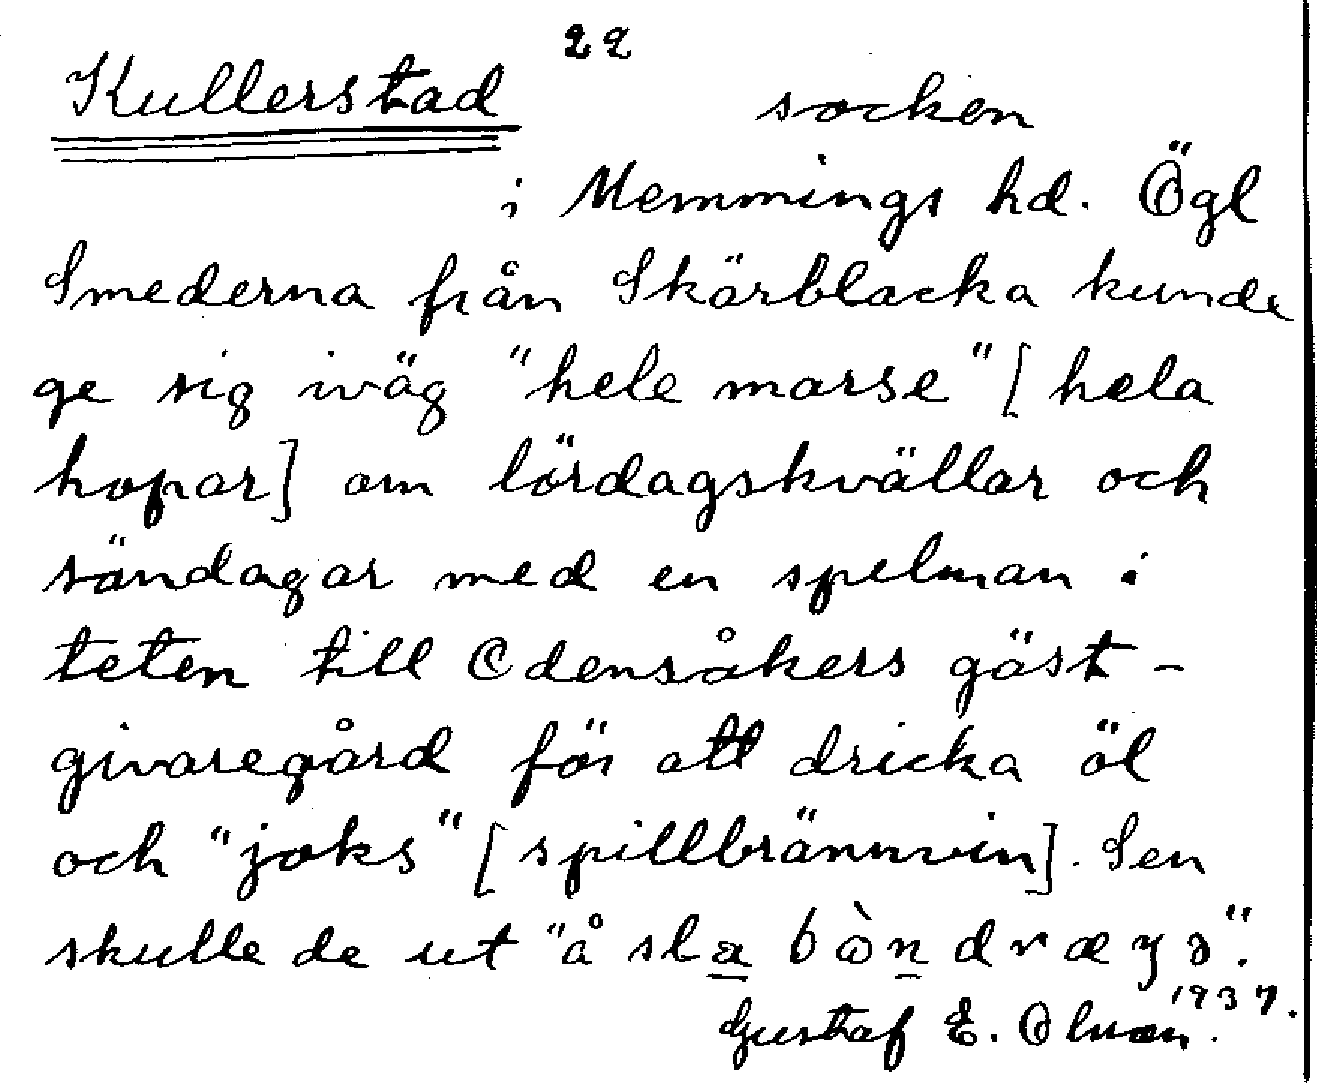 22
Kullerstad socken
i Memmings hd. Ögl
Smederna från Skärblacka kunde
ge sig iväg "hele marse" [hela
hopar] om lördagskvällar och
söndagar med en spelman i
teten till Odensåkers gäst-
givaregård för att dricka öl
och "joks" [spillbrännvin]. Sen
skulle de ut "å sla
1937.
Gustaf E.